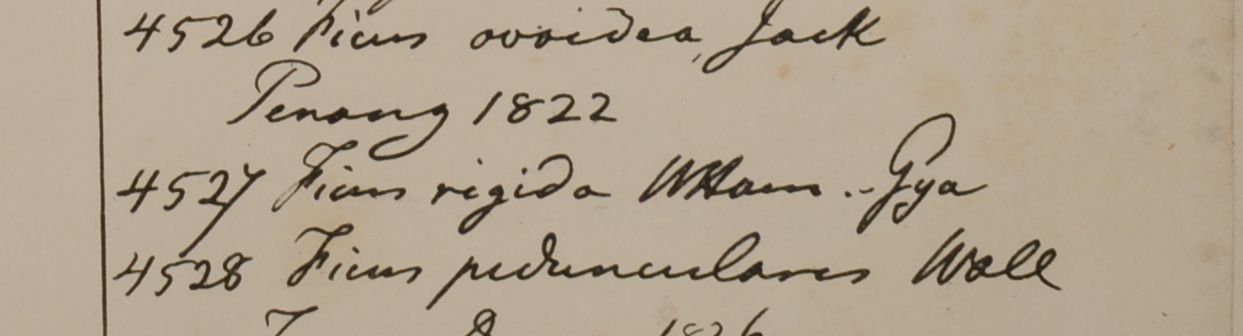 4526 Ficus ovoidea, Jack
Penang 1822
4527 Ficus rigida Gya
4528 Ficus peduncularis Wall
1826